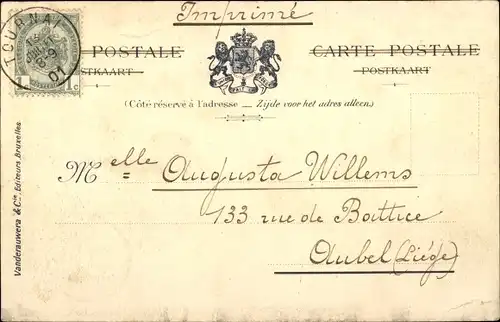 Imprimé
TOURNAI
01
1 c
POSTALE
STKAART
CARTE POSTALE
POSTKAART
(Côté réservé à l'adresse _ Zijde voor het adres alleen.)
Melle Augusta Willems
133 rue de Battice
Aubel (Liége)
Vanderauwera & Cie, Editeurs, Bruxelles